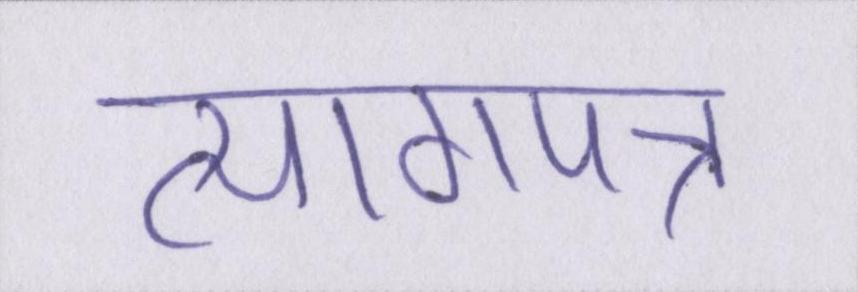 त्यागपत्र